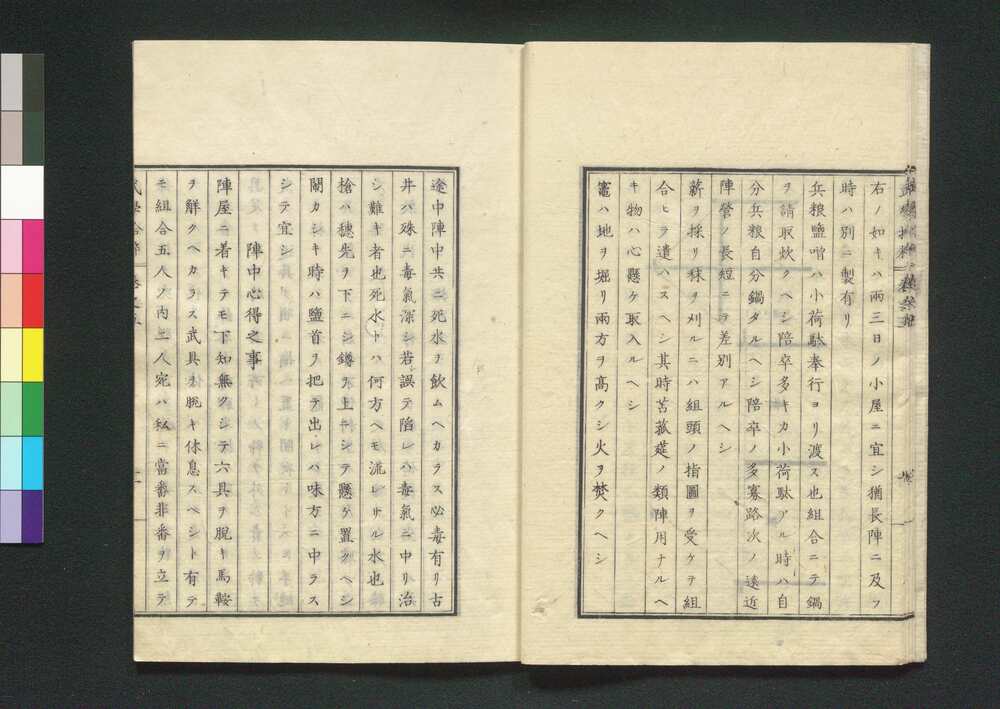 右ノ如キハ兩三日ノ小屋ニ宜シ猶長陣ニ及フ
時ハ別ニ製有リ
兵粮鹽噌ハ小荷駄奉行ヨリ渡ス也組合ニテ鍋
ヲ請取炊クヘシ陪卒多キカ小荷駄アル時ハ自
分兵粮自分鍋タルヘシ陪卒ノ多寡路次ノ遠近
陣營ノ長短ニテ差別アルヘシ
薪ヲ採リ秣ヲ刈ルニハ組頭ノ指圖ヲ受ケテ組
合ヒラ遣ハスヘシ其時苫菰莚ノ類陣用ナルヘ
キ物ハ心懸ケ取入ルヘシ
竈ハ地ヲ堀リ兩方ヲ高クシ火ヲ焚クヘシ
途中陣中共ニ死水ヲ飲ムヘカラス必毒有リ古
井ハ殊ニ毒氣深シ若誤テ陷レハ毒氣ニ中リ治
シ難キ者也死水トハ何方ヘモ流レサル水也
槍ハ穗先ヲ下ニシ鐏ヲ上ニシテ懸ケ置クヘシ
閙カシキ時ハ鹽首ヲ把テ出レハ味方ニ中ラス
シテ宜シ
陣中心得之事
陣屋ニ着キテモ下知無クシテ六具ヲ脱キ馬鞍
ヲ解クヘカラス武具ヲ脱キ休息スヘシト有テ
モ組合五人ノ内二人宛ハ私ニ當番非番ヲ立テ